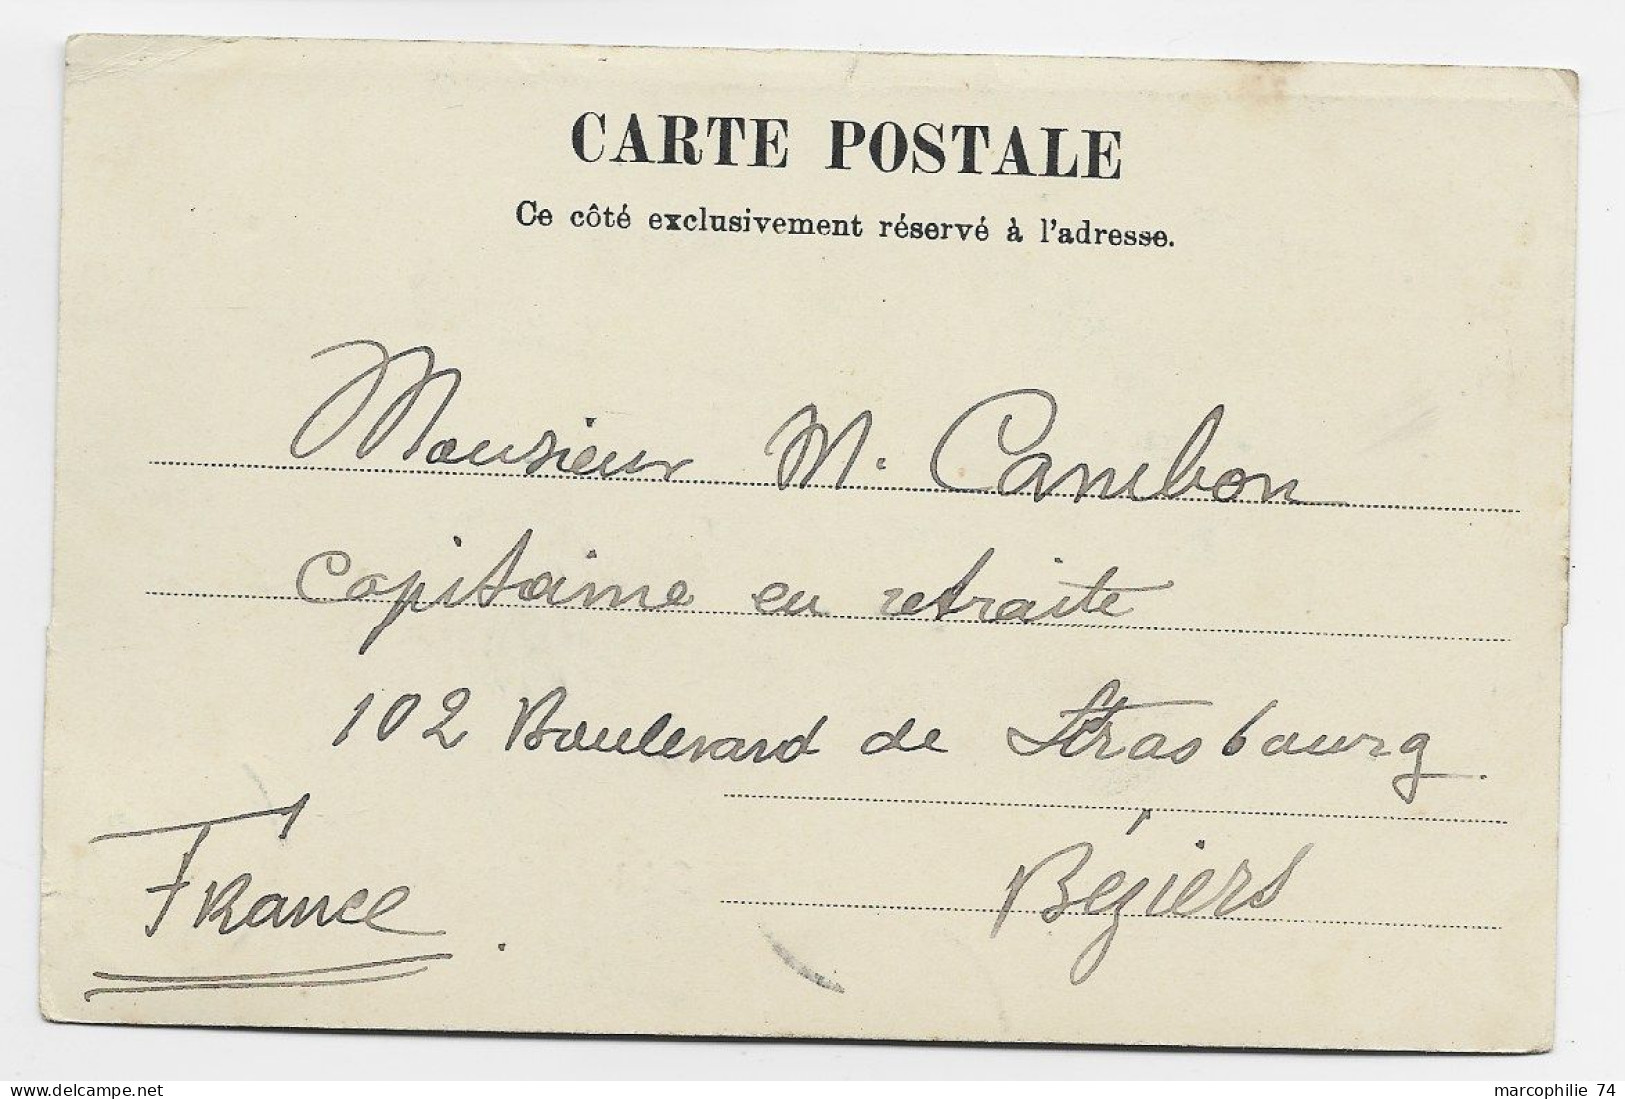 CARTE POSTALE
Ce côté exclusivement réservé à l'adresse.
Monsieur M. Cambon
Capitaine en retraite
102 Boulevard de Strasbourg.
Béziers
France.
marcophilie 74